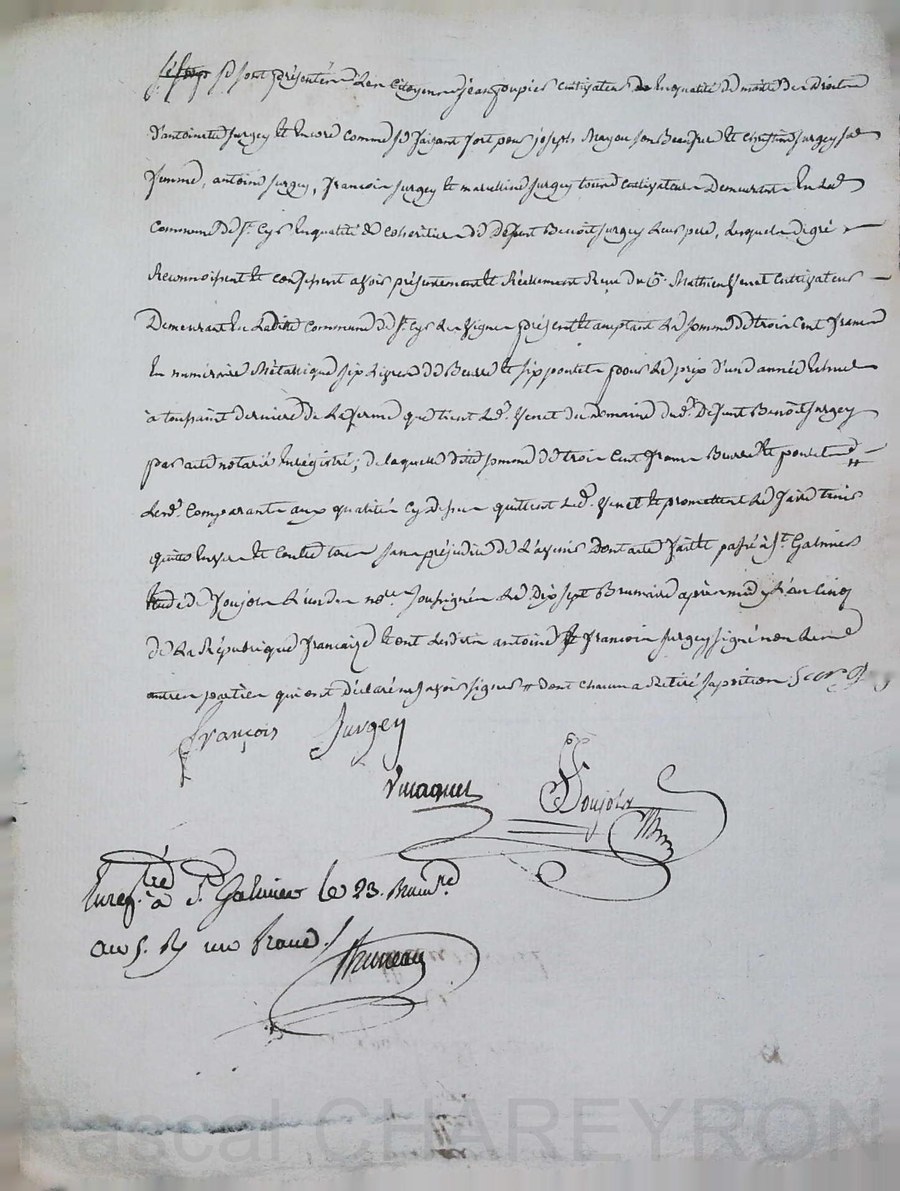 se sont présentés les Citoyens jean poupier Cultivateur en qualité de maitre des Droits
d'antoinette surgey et encore comme se faisant fort pour joseph Mayou son Beaufrere et surgey sa
femme, antoine surgey, francois surgey et marcelline surgey tous Cultivateurs Demeurants en lad.
Commune de St. Cyr En qualité de coheritiers de Defunt Benoit surgey Leur pere, Lesquels de gré
Reconnoissent et confessent avoir présentement et Réellement Reçu du C. Mathieu Venet Cultivateur
Demeurant en Ladite Commune de St. Cyr les vignes présent et acceptant La somme de trois Cent francs
En numéraire Métallique six Livres de Beurre et six poulets pour Le prix d'une année Echue
à toussaint derniere de La ferme que tient led. Venet du Domaine dud. Defunt Benoit surgey
par acte notarié Enrégistré; de laquelle dite somme de trois Cent francs Beurre et poulets
Lesd. Comparants aux qualités Cy Dessus quittent Led. Venet et promettent Le faire tenir
quitte Envers et Contre tous sans préjudice de L'avenir Dont acte fait et passé à St. Galmier
Etude de Voujoux L'un des nres. soussignés Le Dix sept Brumaire après midy L'an Cinq
de La République francaise et ont Lesdits antoine et francois surgey signé non Les
autres parties qui ont déclaré ne savoir signer dont chacun a Retiré sa portion Surgey
françois Surgey
Voujoux
Enregtré. à St. Galmier le 23. Brum.re
an 5. R un franc
Bruneau
Pascal CHAREYRON